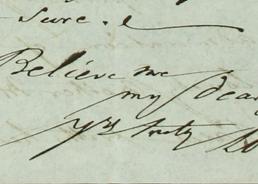 sure.
Believe me
my dear
yrs truly